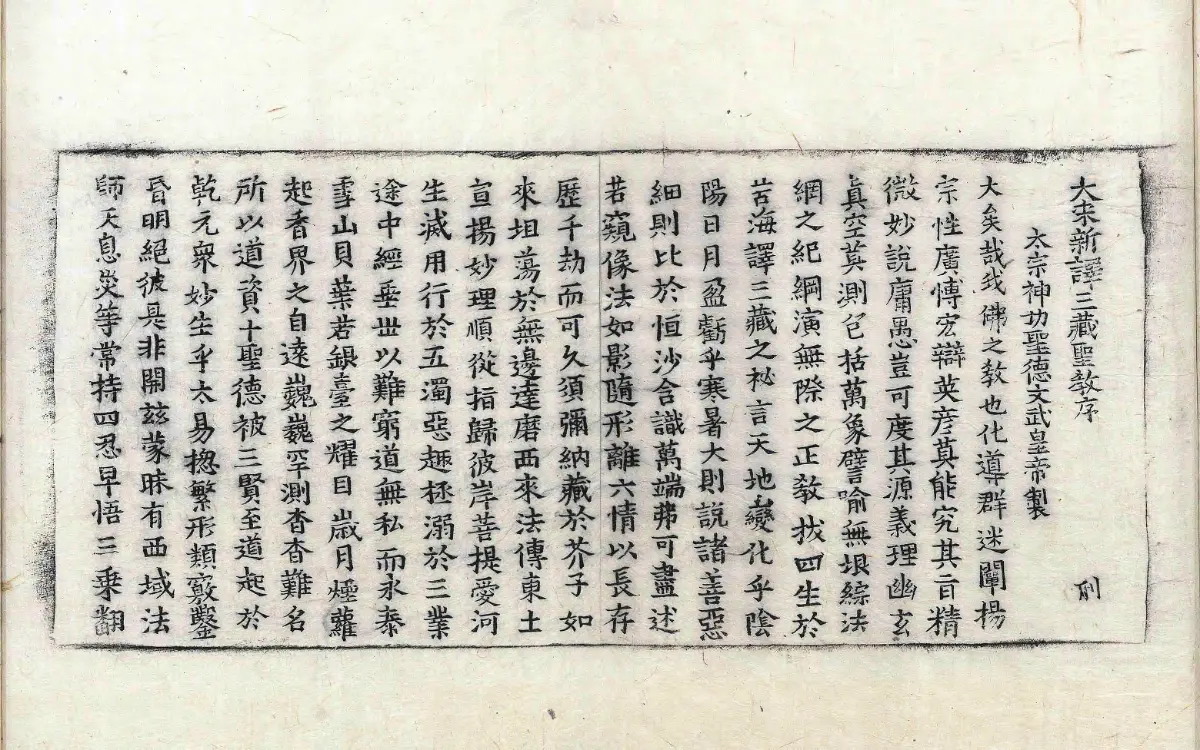 大宋新譯三藏聖教序
太宗神功聖德文武皇帝製
刖
大矣哉我佛之教也化導群迷闡揚
宗性廣博宏辯英彦莫能究其旨精
微妙說庸愚豈可度其源義理幽玄
真空莫測包括萬象譬喻無垠綜法
網之紀綱演無際之正教拔四生於
苦海譯三藏之秘言天地變化乎陰
陽日月盈虧乎寒暑大則說諸善惡
細則比於恒沙含識萬端弗可盡述
若窺像法如影隨形離六情以長存
歷千劫而可久須彌納藏於芥子如
來坦蕩於無邊達磨西來法傳東土
宣揚妙理順從指歸彼岸菩提愛河
生滅用行於五濁惡趣拯溺於三業
途中經垂世以難窮道無私而永泰
雪山貝葉若銀臺之耀目歲月煙蘿
起香界之自遠巍巍罕測杳杳難名
所以道資十聖德被三賢至道起於
乾元衆妙生乎太易揔繁形類竅鑿
昏明絕彼是非開兹蒙昧有西域法
師天息災等常持四忍早悟三乘翻